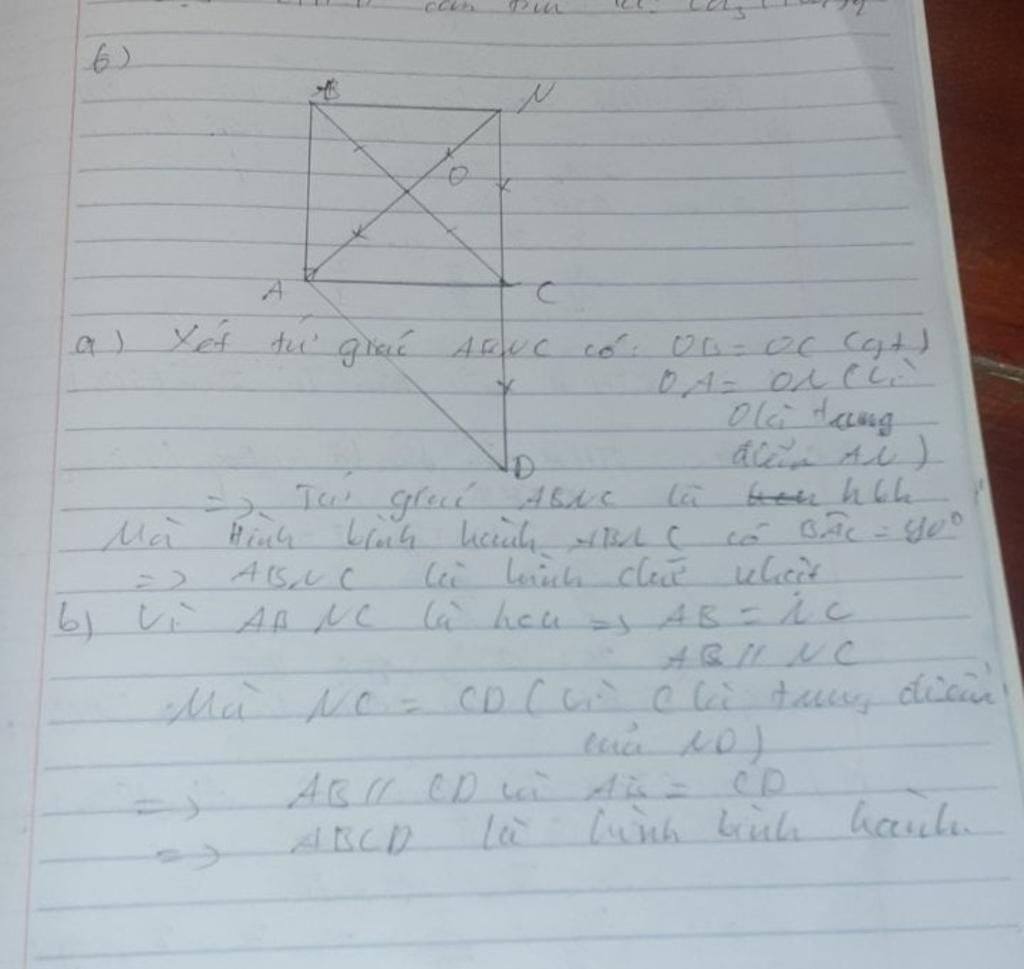 6)
B N
O
A C
a) Xét tứ giác ABNC có: OB = OC (gt)
OA = ON (Vì
O là trung
điểm AN)
D
=> Tứ giác ABNC là hbh
Mà Hình bình hành ABNC có BÂC = 90°
=> ABNC là hình chữ nhật
b) Vì ABNC là hcn => AB = NC
AB // NC
Mà NC = CD (Vì C là trung điểm
của ND)
=> AB // CD và AB = CD
=> ABCD là hình bình hành.